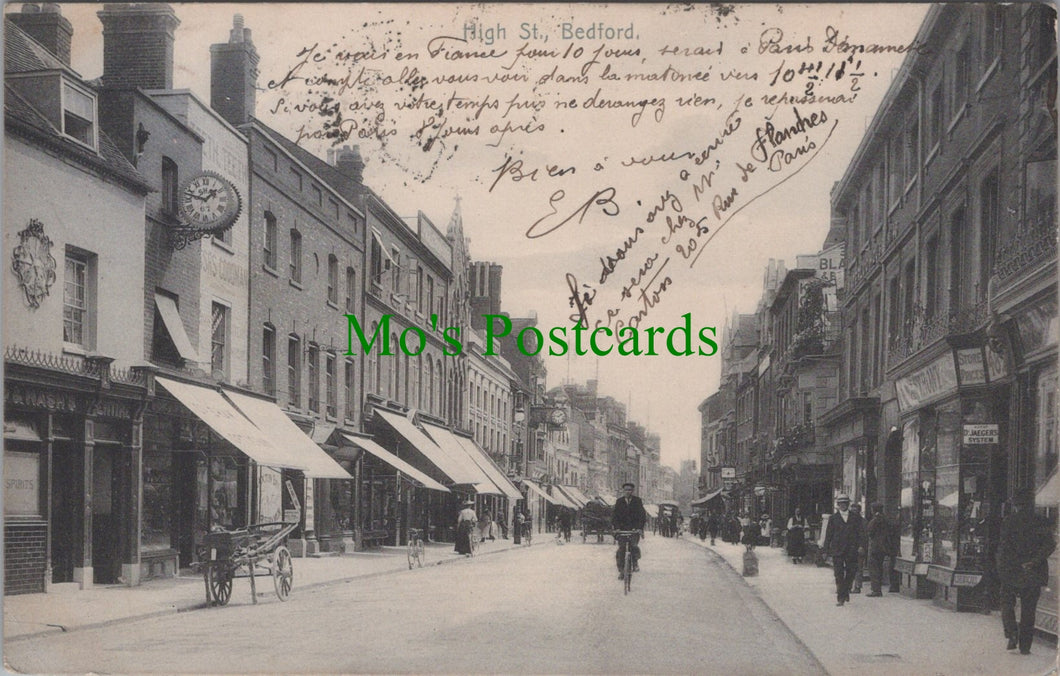 High St., Bedford.
Je vais en France pour 10 jours, serais à Paris Dimanche
et compte aller vous voir dans la matinée vers 10 1/2 11 1/2.
Si vous avez votre temps pris ne derangez rien, je repasserai
par Paris 8 jours après.
Bien à vous
EB
Je
avez à
ce sera chez Mr
205 Rue de Flandres
Paris
Mo's Postcards
SPIRITS
DR JAEGERS
SYSTEM